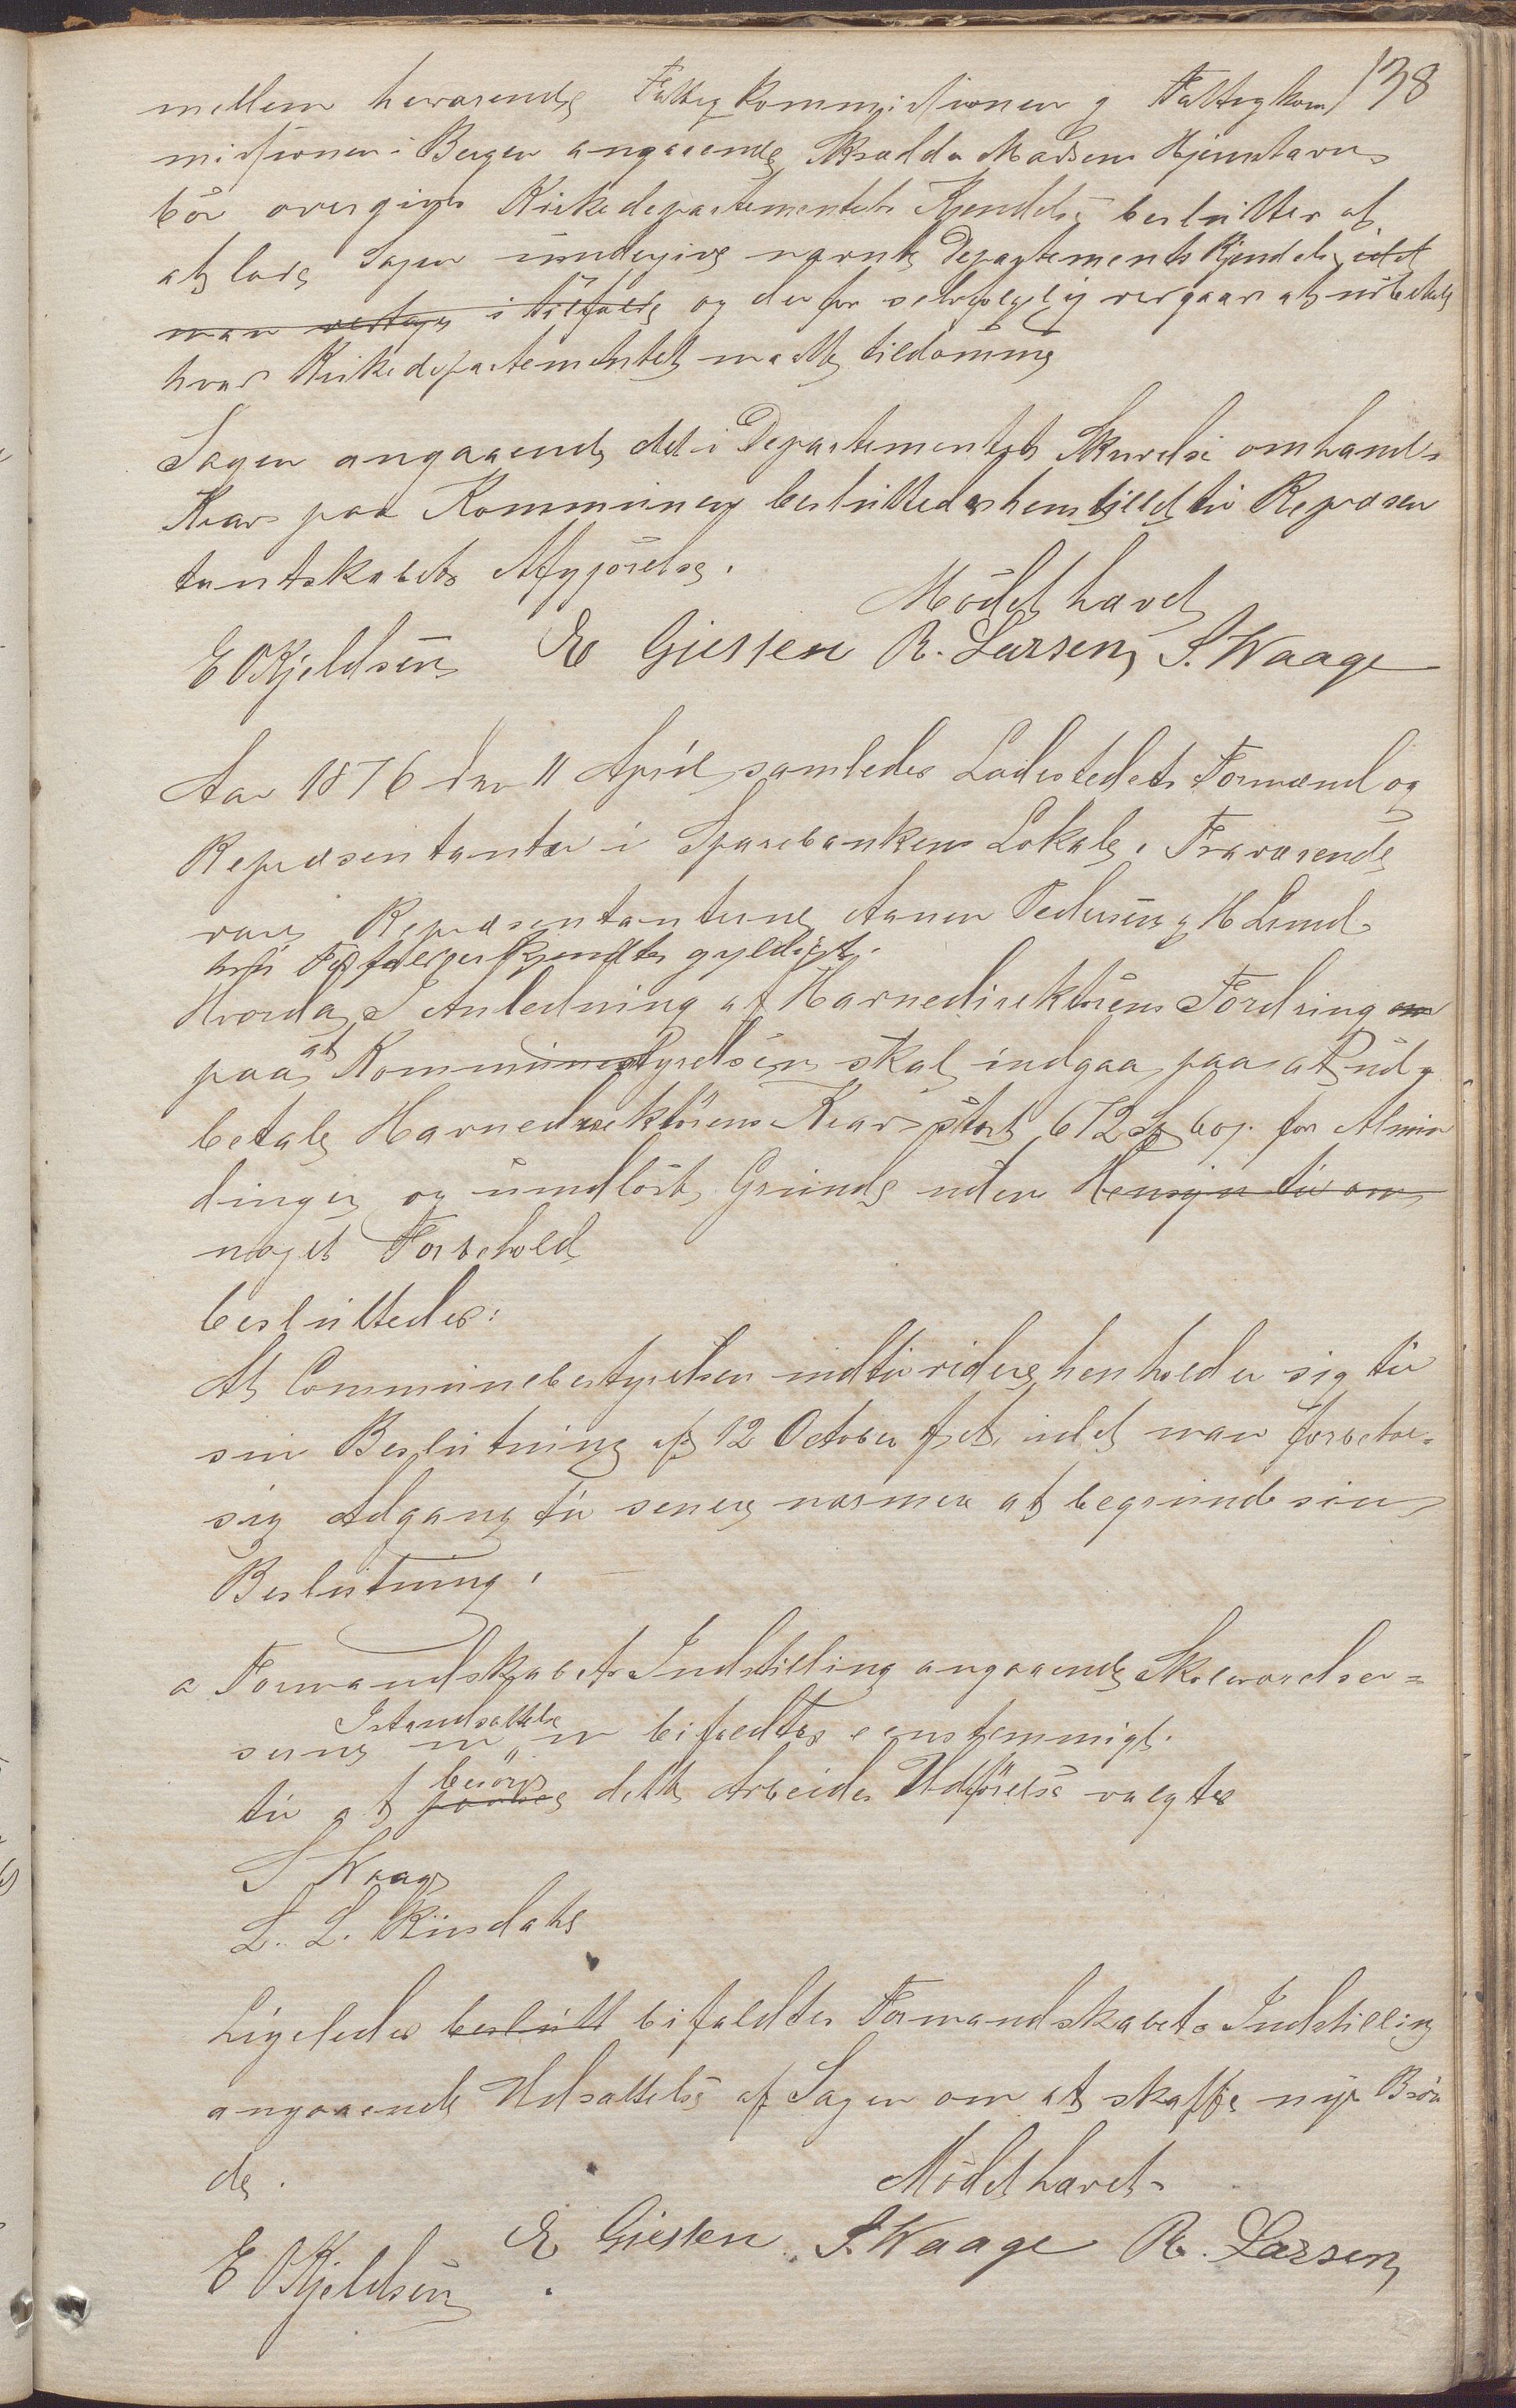 138
mellem herværende Fattigkommissionen og Fattigkom
missionen i Bergen angaaende Skrædder Madsens Hjemstavn
bör overgives Kirkedepartementets Kjendelse beslutter at
at lade Sagen undergive nævnte Departements Kjendelse idet
man vedtage i Tilfælde og derfor selvfølgelig vedgaar at udbetale
hvad Kirkedepartementet maatte tildömme
Sagen angaaende det i Departementets Skrivelse omhandl.
Krav paa Kommunen besluttedes henstillet til Repræsen
tantskabets Afgjörelse.
Mödet hævet
E OKjeldsen E Gjessen R. Larsen S. Waage
Aar 1876 den 11 April samledes Ladestedets Formænd og
Repræsentanter i Sparebankens Lokale. Fraværende
vare Repræsentanterne Aanen Pedersen og H Lund
hvis Forfald erkjendtes gyldigt.
Hvorda I Anledning af Havnedirektörens Fordring om
paa at Kommunestyrelsen skal indgaa paa at ud
betale Havnedirektörens Krav stort 672 Sp 60 s. for Almin
dinger og uindlöst Grunde uden Hensyn til om
noget Forbehold
besluttedes:
At Communebestyrelsen indtil videre henholder sig til
sin Beslutning af 12 October f. A. idet man forbehol=
sig Adgang til senere nærmere at begrunde sin
Beslutning.
a Formandskabets Indstilling angaaende Skoleværelser=
senes Istandsættelse bifaldtes eenstemmigt.
til at besörge dette Arbeides Udförelse valgtes
S Waage
L. L. Rusdahl
Ligeledes beslutt bifaldtes Formandskabets Indstilling
angaaende Udsættelse af Sagen om at skaffe nye Brön
de.
Mödet hævet
E OKjeldsen E Gjessen S. Waage R. Larsen